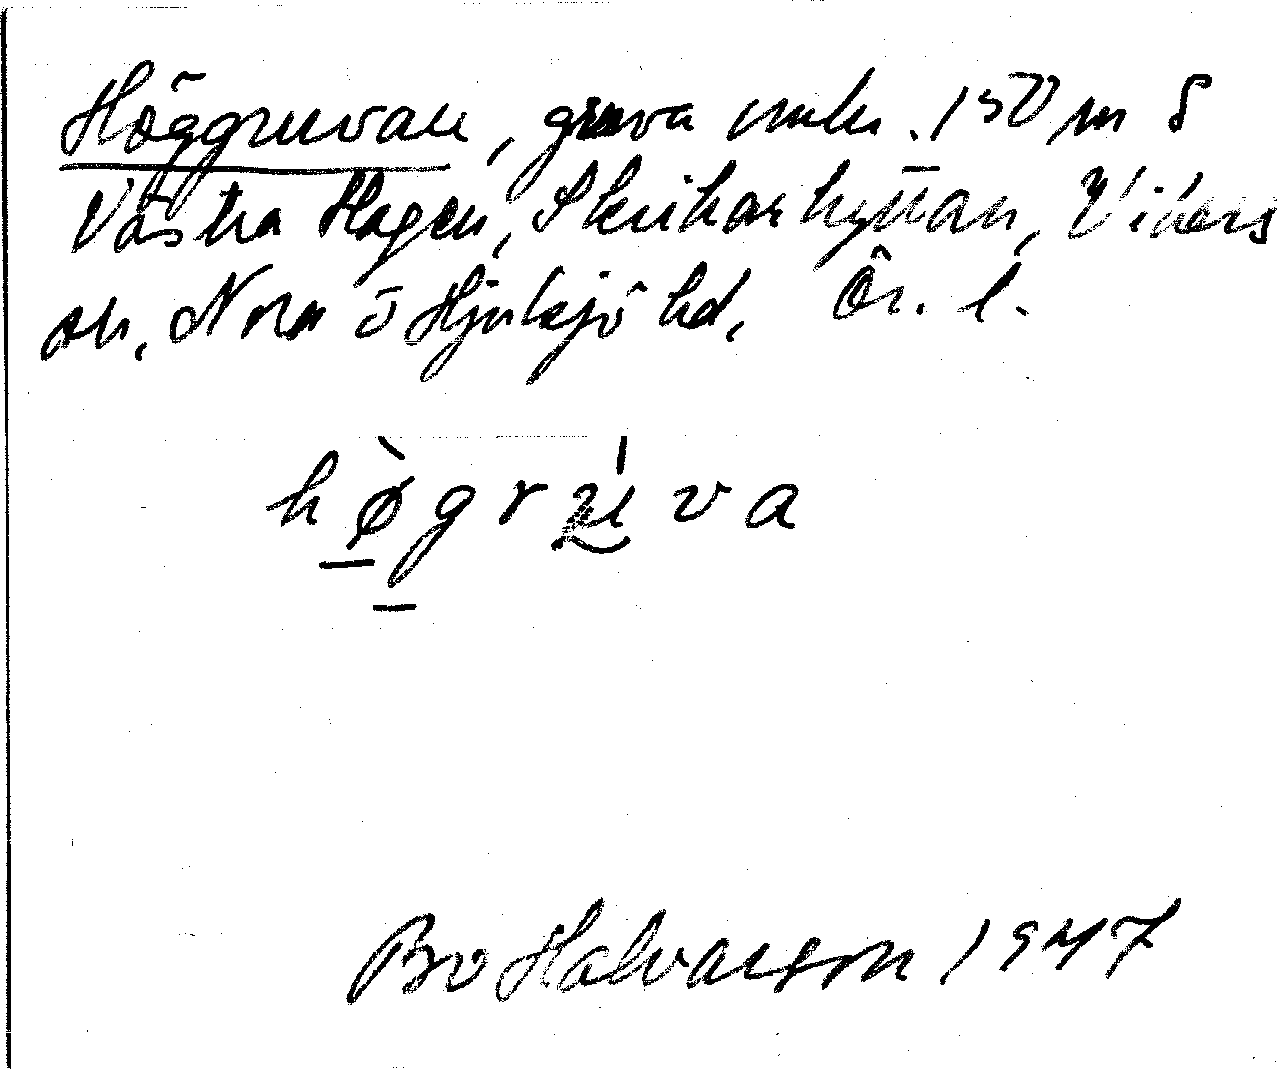 Höggruvan, gruva 150 m S
Västra Hagen, Skrikarhyttan, Vikers
sn, Nora o Hjulsjö hd, Ör. l.
høgruva
Bo Halvarson 1947